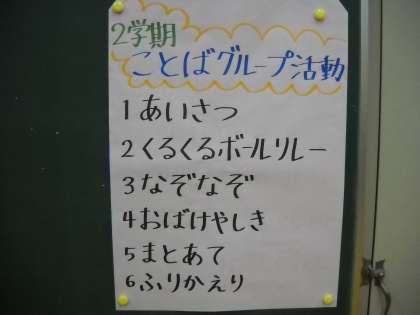 2学期
ことばグループ活動
1 あいさつ
2 くるくるボールリレー
3 なぞなぞ
4 おばけやしき
5 まとあて
6 ふりかえり